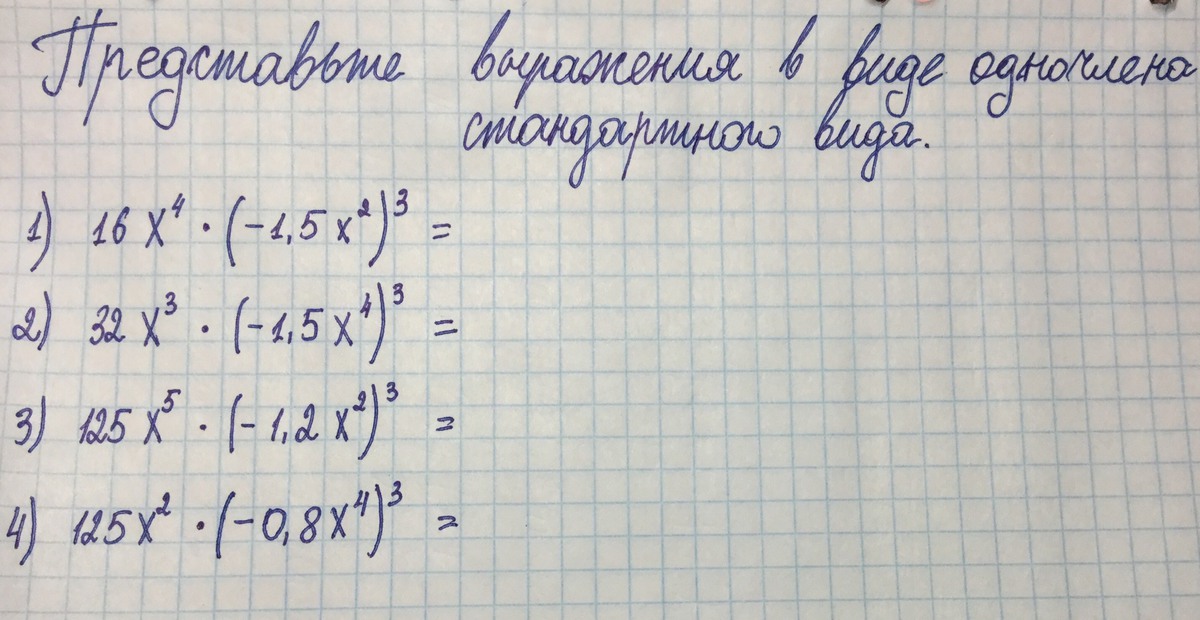 Представьте выражения в виде одночлена
стандартного вида.
1) 16 x⁴ · (-1,5 x²)³ =
2) 32 x³ · (-1,5 x⁴)³ =
3) 125 x⁵ · (-1,2 x²)³ =
4) 125x² · (-0,8x⁴)³ =